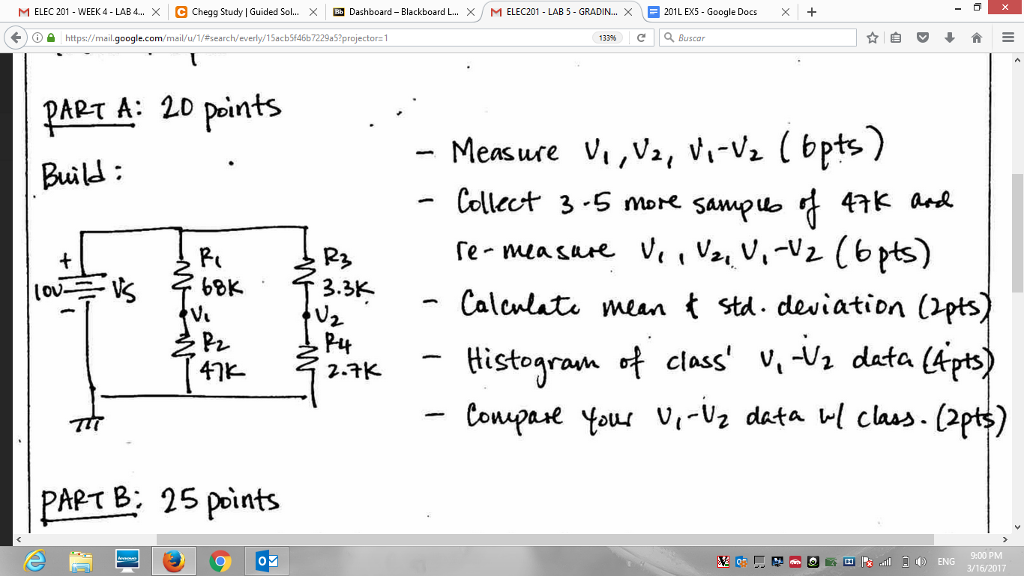 ELEC 201 - WEEK 4 - LAB 4...
Chegg Study | Guided Sol...
Dashboard – Blackboard L...
ELEC201 - LAB 5 - GRADIN...
201L EX5 - Google Docs
https://mail.google.com/mail/u/1/#search/everly/15acb5f46b7229a5?projector=1
133%
Buscar
PART A: 20 points
Build:
- Measure V1, V2, V1-V2 (6pts)
- Collect 3-5 more samples of 47K and
re-measure V1, V2, V1-V2 (6pts)
- Calculate mean & std. deviation (2pts)
- Histogram of class' V1-V2 data (4pts)
- Compare your V1-V2 data w/ class. (2pts)
+
10V
VS
-
R1
68K
V1
R2
47K
R3
3.3K
V2
R4
2.7K
PART B: 25 points
ENG
9:00 PM
3/16/2017